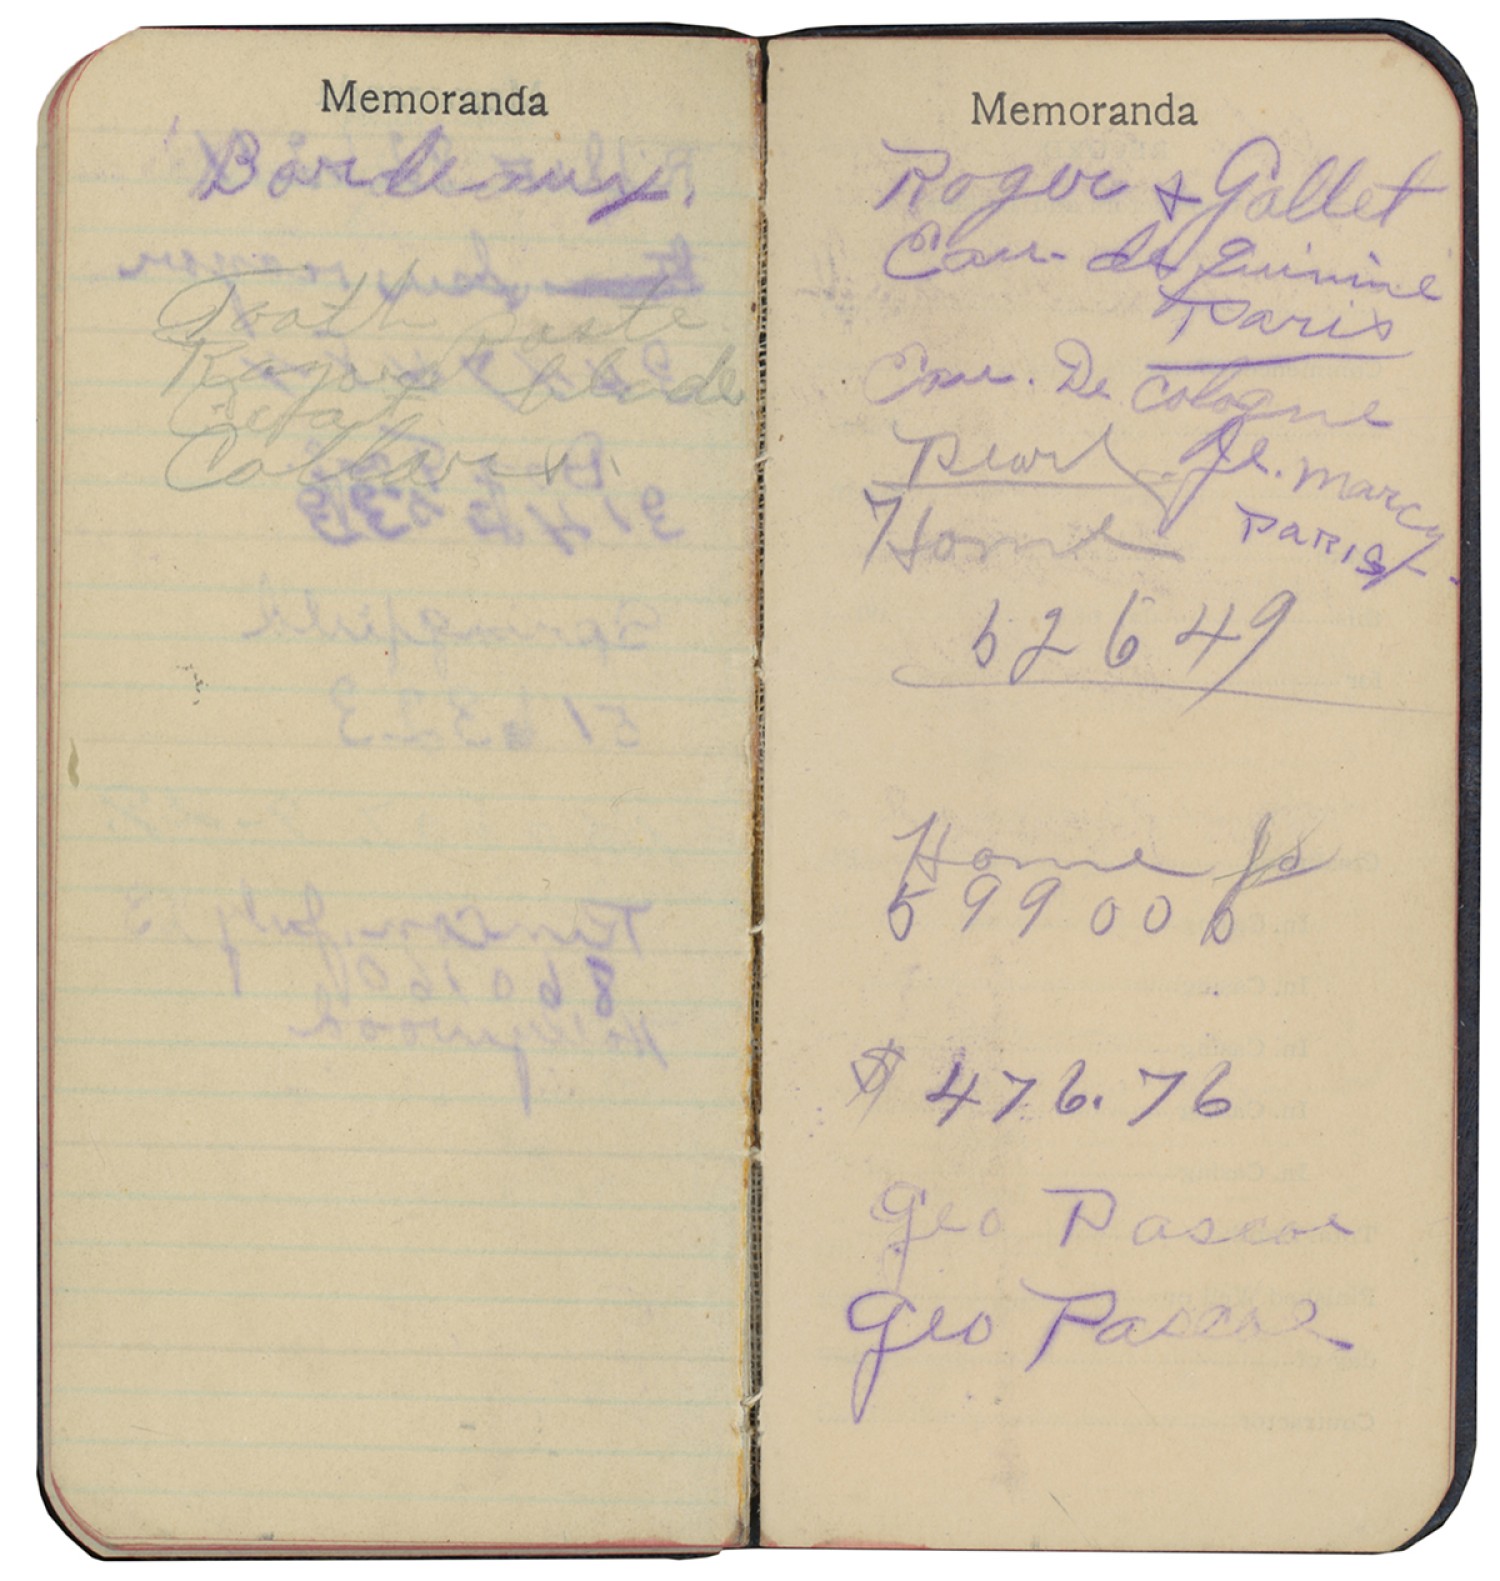 Memoranda
Bordeaux.
Tooth paste
Razor blade
Collars
Memoranda
Roger & Gallet
Eau. de Quinine
Paris
Eau. De Cologne
Pearl Je. Marcy
PARIS
Home
52649
Home
599006
$ 476.76
Geo Pascoe
Geo Pascoe